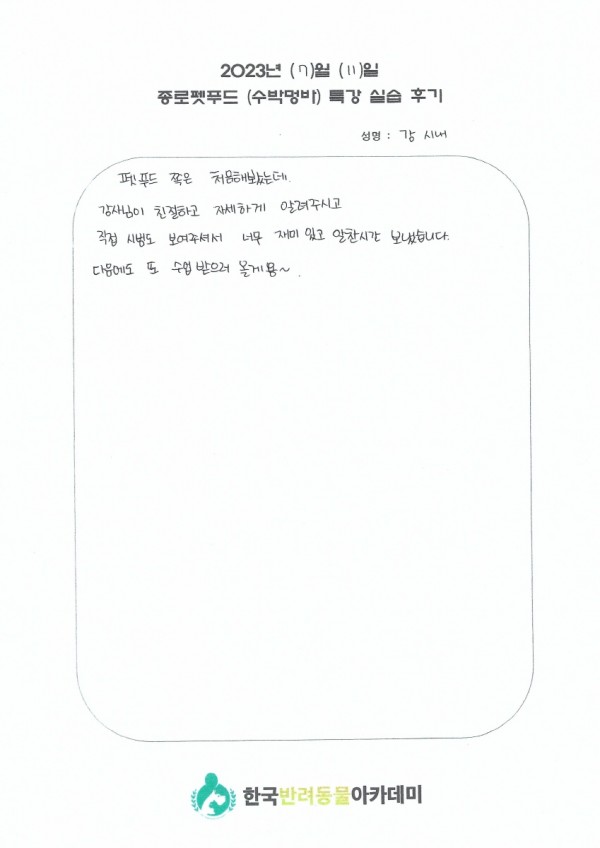 2023년 (7)월 (11)일
종로펫푸드 (수박멍바) 특강 실습 후기
성명 : 강 시내
펫푸드 쪽은 처음해봤는데.
강사님이 친절하고 자세하게 알려주시고
직접 시범도 보여주셔서 너무 재미있고 알찬시간 보냈습니다.
다음에도 또 수업 받으러 올게용~.
한국반려동물아카데미